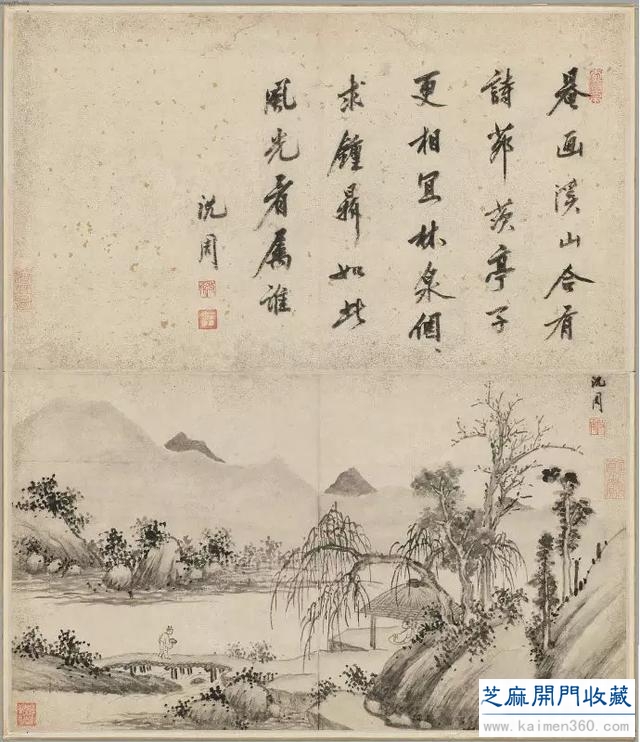 罨画溪山合有
詩茆茨亭子
更相宜林泉個、
求鐘鼎如此
風光看属誰
沈周
沈周
芝麻開門收藏
www.kaimen360.com